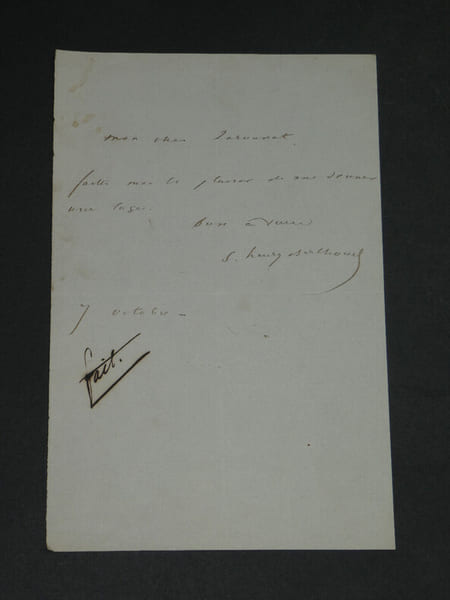 mon cher
faites moi le plaisir de me donner
une loge.
Bien à vous
S. henry Berthoud
7 octobre –
fait.